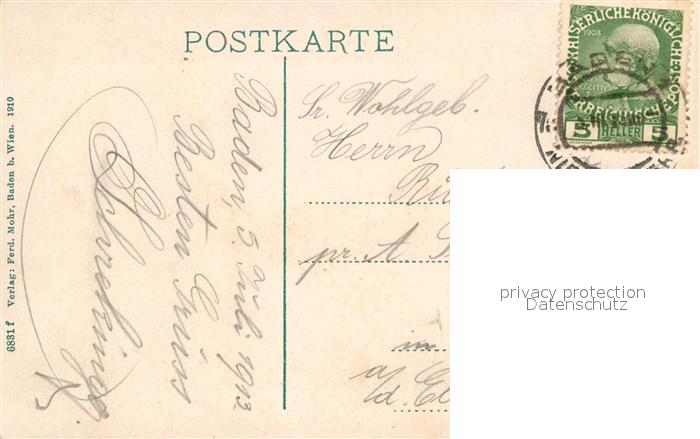 POSTKARTE
Verlag: Ferd. Mohr, Baden b. Wien. 1910
6831 f
Baden 5 Juli 1913
Besten Gruss
Sr. Wohlgeb.
Herrn
pr. A
in
a/d. El
KAISERLICHE KÖNIGLICHE
1908
5 HELLER 5
privacy protection
Datenschutz